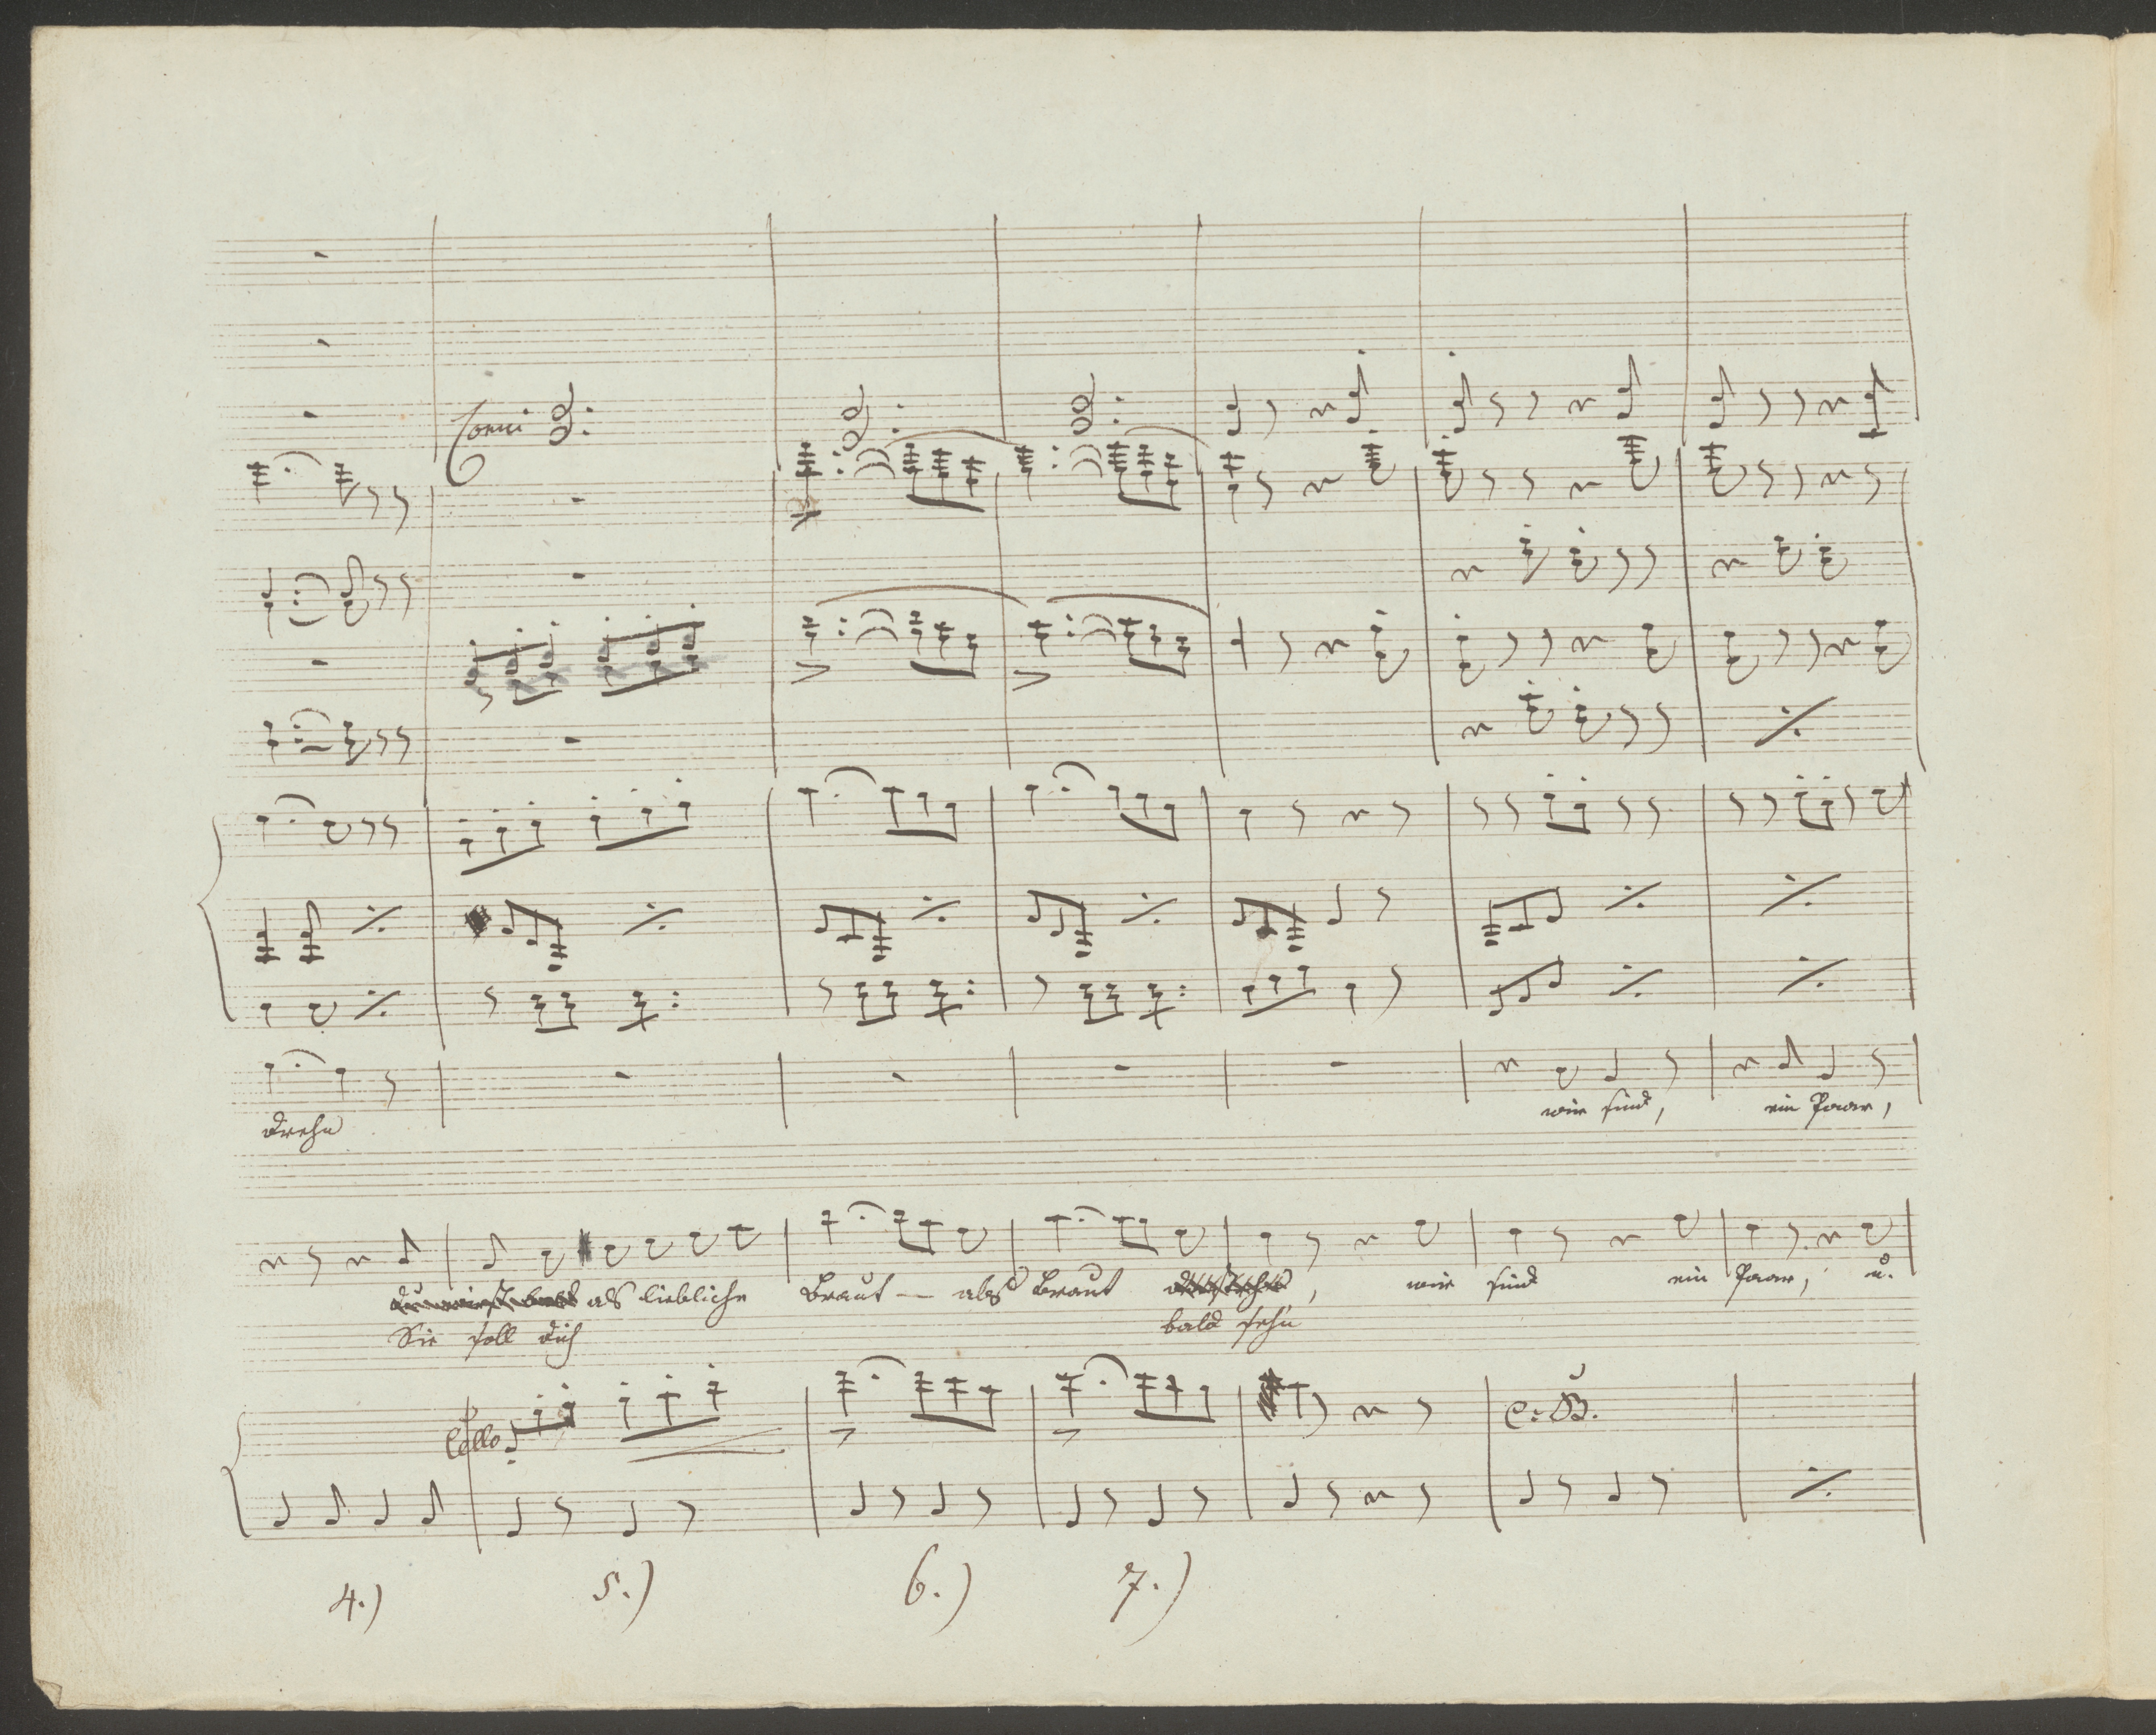 Corni
drehn
wir sind, ein Paar,
als liebliche Braut — als Braut , wir sind ein Paar, u.
Sie soll dich bald sehn
Cello
C: B.
4.) 5.) 6.) 7.)